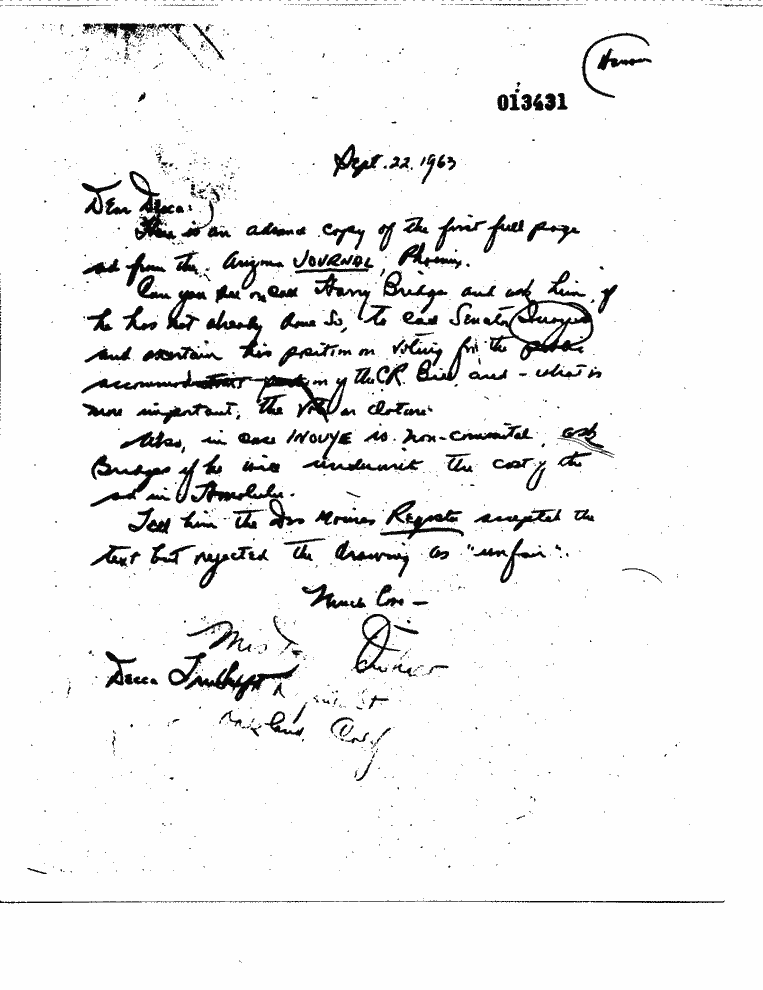 013431
Sept. 22, 1963
Dear Decca:
Here is an advance copy of the first full page
ad from the Arizona JOURNAL, Phoenix.
Can you see or call Harry Bridges and ask him, if
he has not already done so, to call Senator Inouye
and ascertain his position on voting for the public
accommodations of the CR Bill, and - what is
more important, the vote on cloture.
Also, in case INOUYE is non-commital, ask
Bridges if he will underwrite the cost of the
ad in Honolulu.
Tell him the Des Moines Register accepted the
text but rejected the drawing as "unfair".
Much Love -
Mrs
Decca Truehaft
St
Oakland, Calif